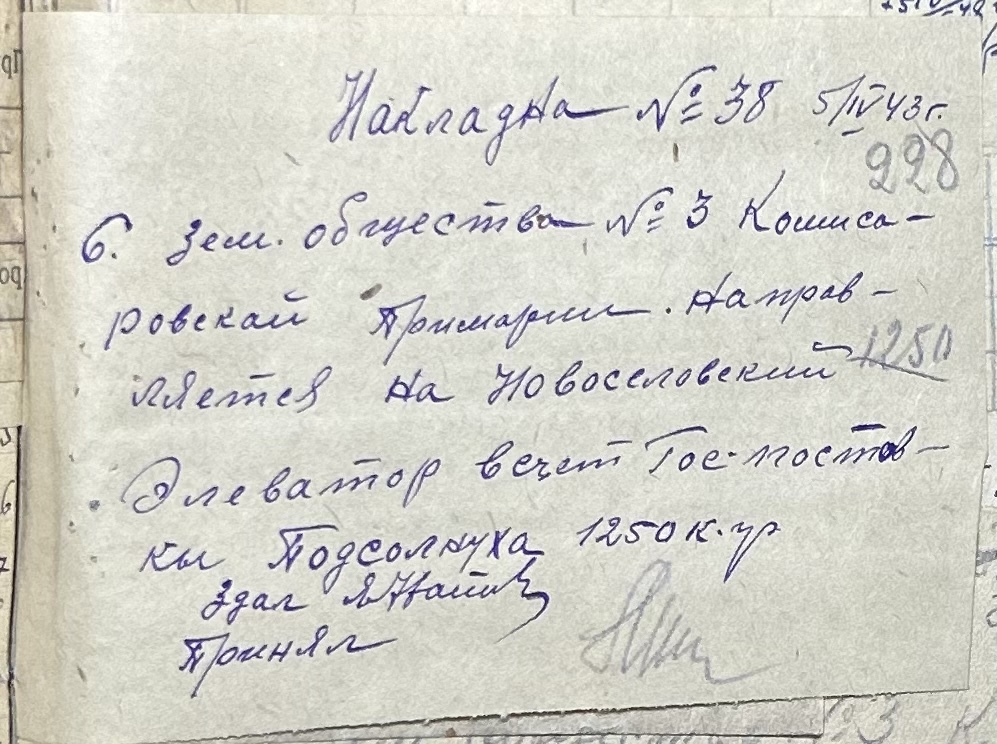 Накладна № 38 5/IV 43 г.
228
б. Зем. общества № 3 Комиса-
ровской Примарии. Направ-
ляется на Новоселовский 1250
Элеватор всчет Гос-постав-
кы Подсолнуха 1250 к.гр
Здал
Принял
№3 К